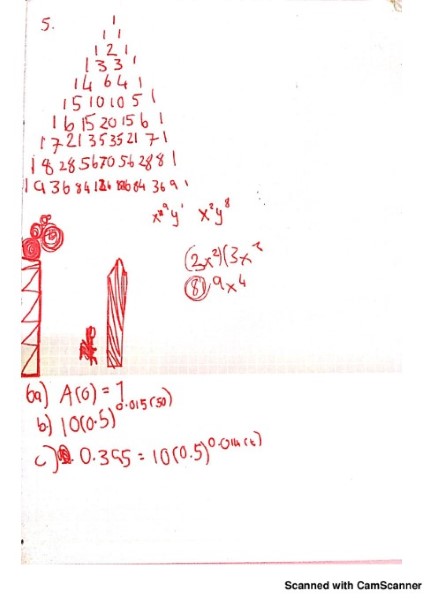 5.
1
1 1
1 2 1
1 3 3 1
1 4 6 4 1
1 5 10 10 5 1
1 6 15 20 15 6 1
1 7 21 35 35 21 7 1
1 8 28 56 70 56 28 8 1
1 9 36 84 126 84 36 9 1
x⁹y¹ x²y⁸
(2x²)(3x²
8 9x⁴
6a) A(0) = 1
b) 10(0.5)^0.015(50)
c) 0.355 = 10(0.5)^0.014(t)
Scanned with CamScanner